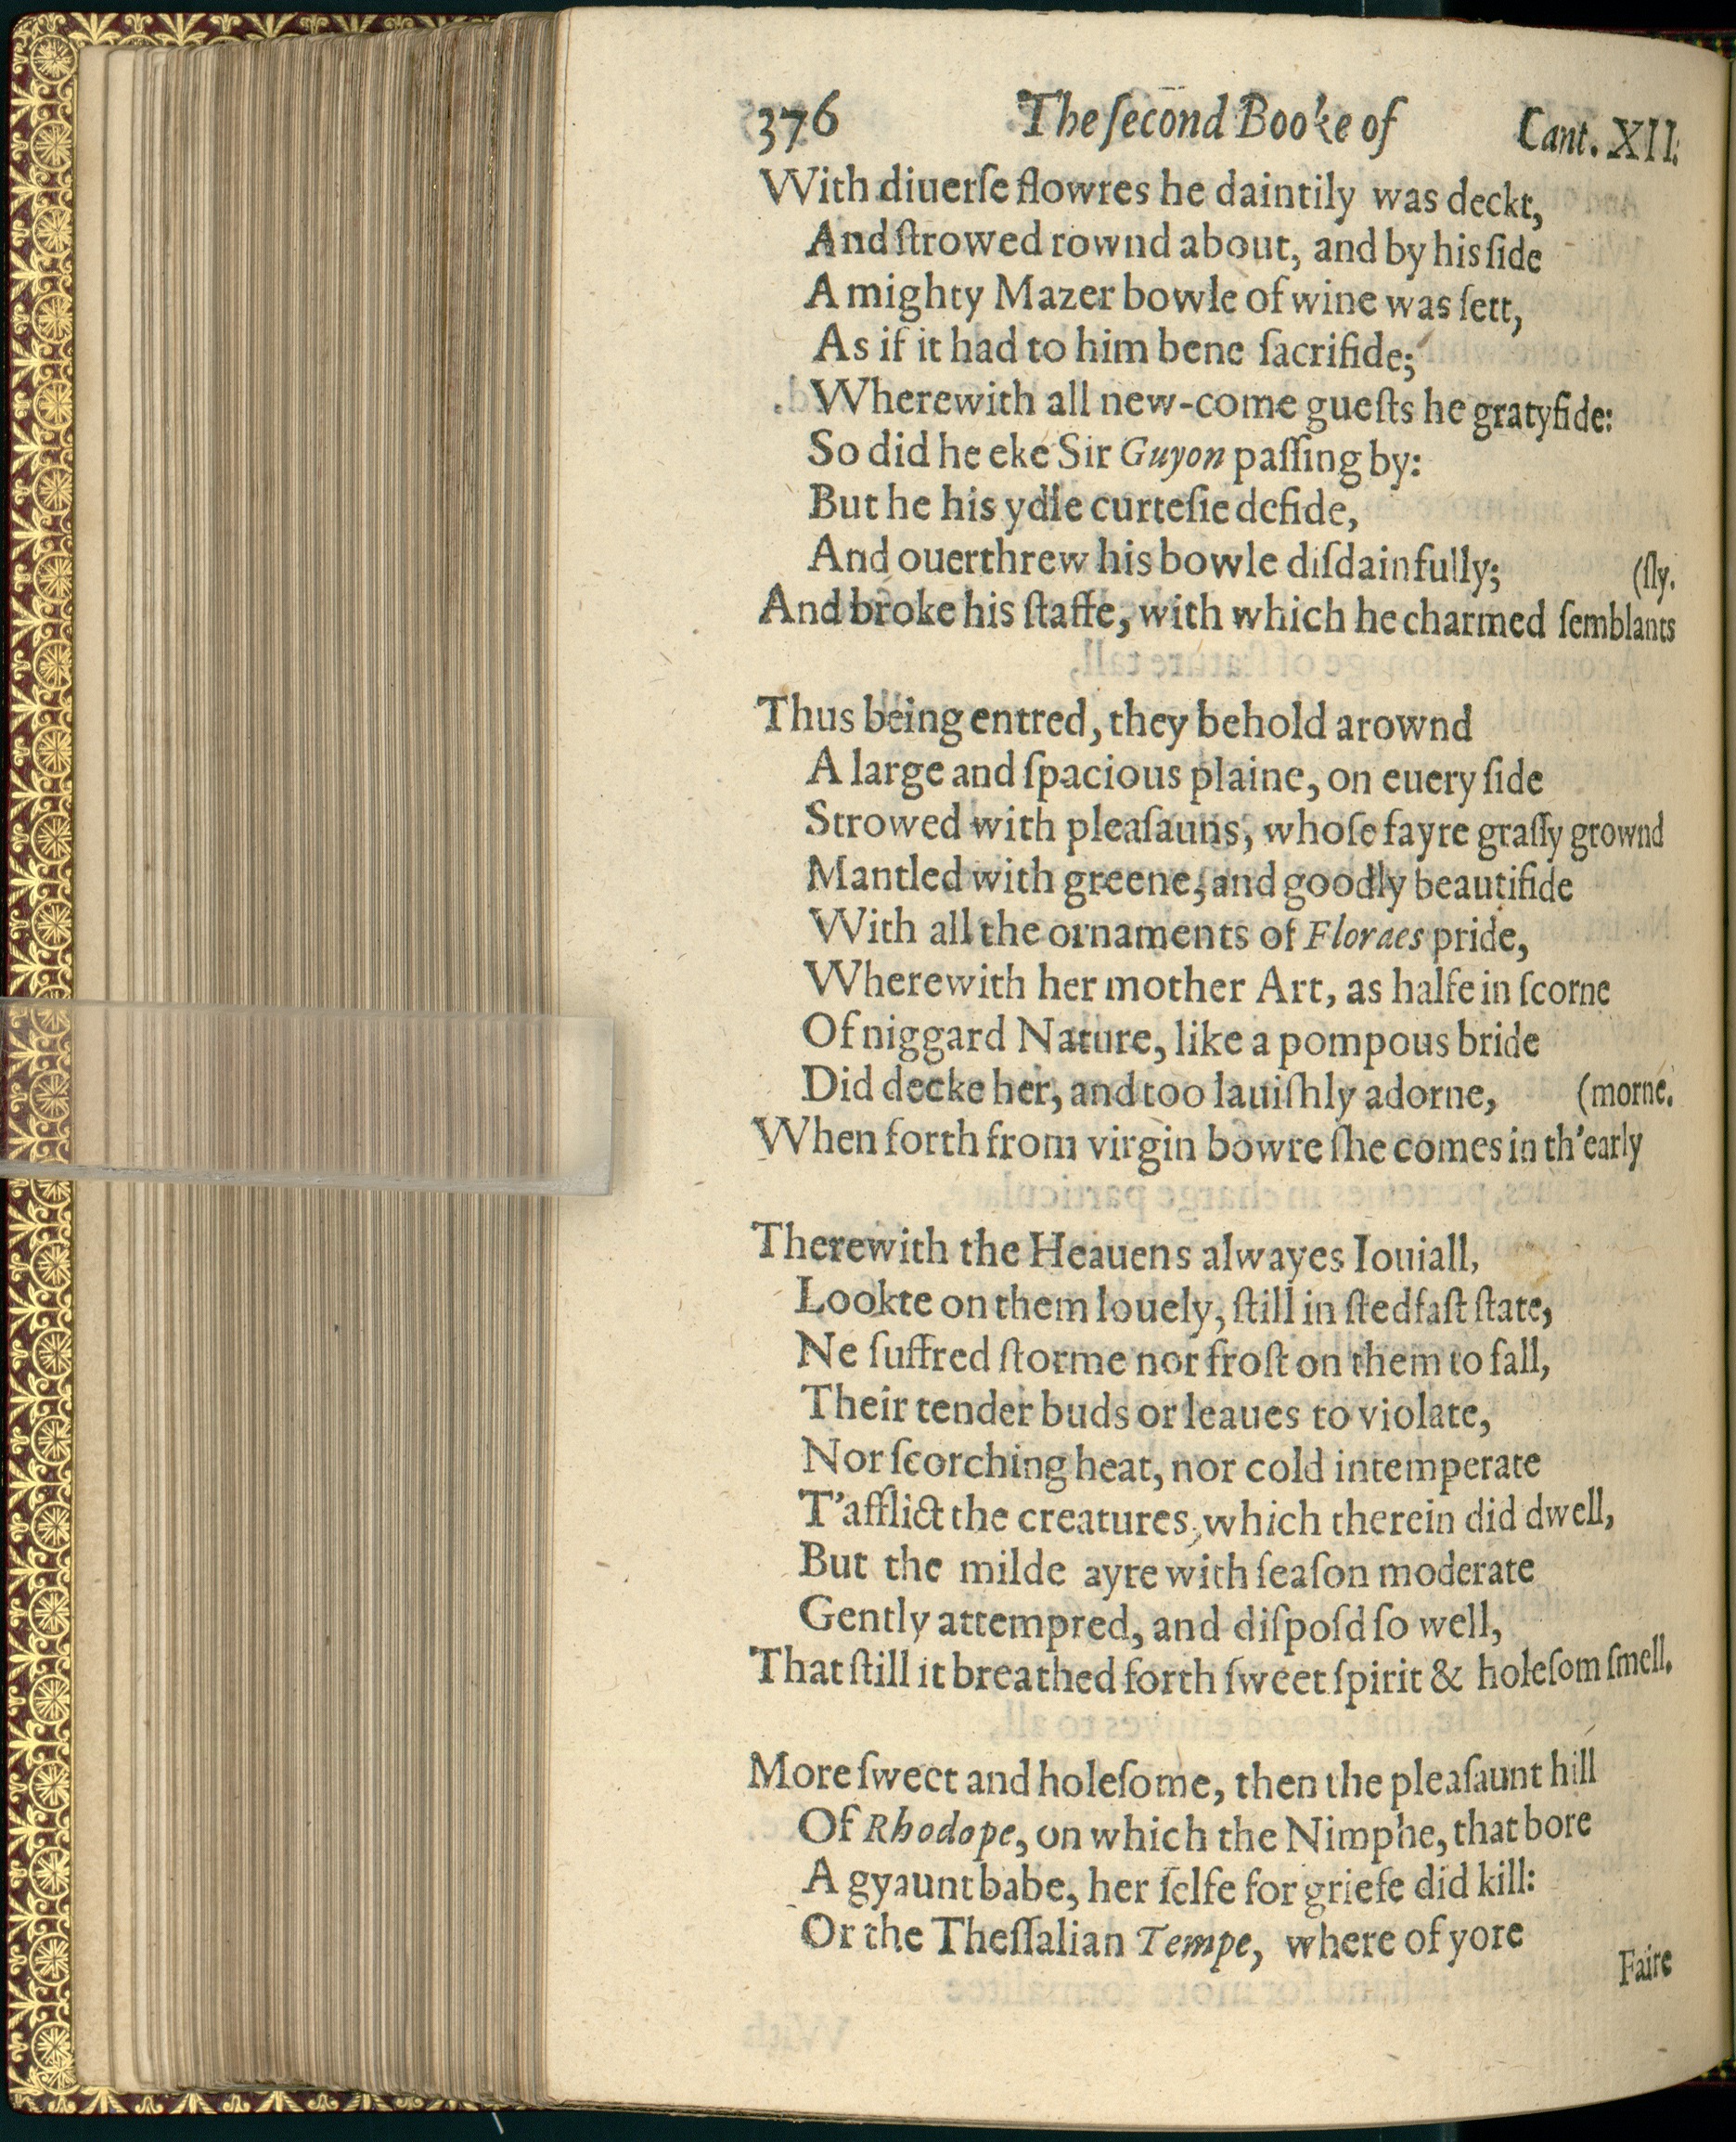 376 The ſecond Booke of Cant. XII.
With diuerſe flowres he daintily was deckt,
And ſtrowed rownd about, and by his ſide
A mighty Mazer bowle of wine was ſett,
As if it had to him bene ſacrifide;
Wherewith all new-come gueſts he gratyfide:
So did he eke Sir Guyon paſſing by:
But he his ydle curteſie defide,
And ouerthrew his bowle diſdainfully; (ſly.
And broke his ſtaffe, with which he charmed ſemblants
Thus being entred, they behold arownd
A large and ſpacious plaine, on euery ſide
Strowed with pleaſauns, whoſe fayre graſſy grownd
Mantled with greene, and goodly beautifide
With all the ornaments of Floraes pride,
Wherewith her mother Art, as halfe in ſcorne
Of niggard Nature, like a pompous bride
Did decke her, and too lauiſhly adorne, (morne.
When forth from virgin bowre ſhe comes in th'early
Therewith the Heauens alwayes Iouiall,
Lookte on them louely, ſtill in ſtedfaſt ſtate,
Ne ſuffred ſtorme nor froſt on them to fall,
Their tender buds or leaues to violate,
Nor ſcorching heat, nor cold intemperate
T'afflict the creatures, which therein did dwell,
But the milde ayre with ſeaſon moderate
Gently attempred, and diſpoſd ſo well,
That ſtill it breathed forth ſweet ſpirit & holeſom ſmell.
More ſweet and holeſome, then the pleaſaunt hill
Of Rhodope, on which the Nimphe, that bore
A gyaunt babe, her ſelfe for griefe did kill:
Or the Theſſalian Tempe, where of yore
Faire